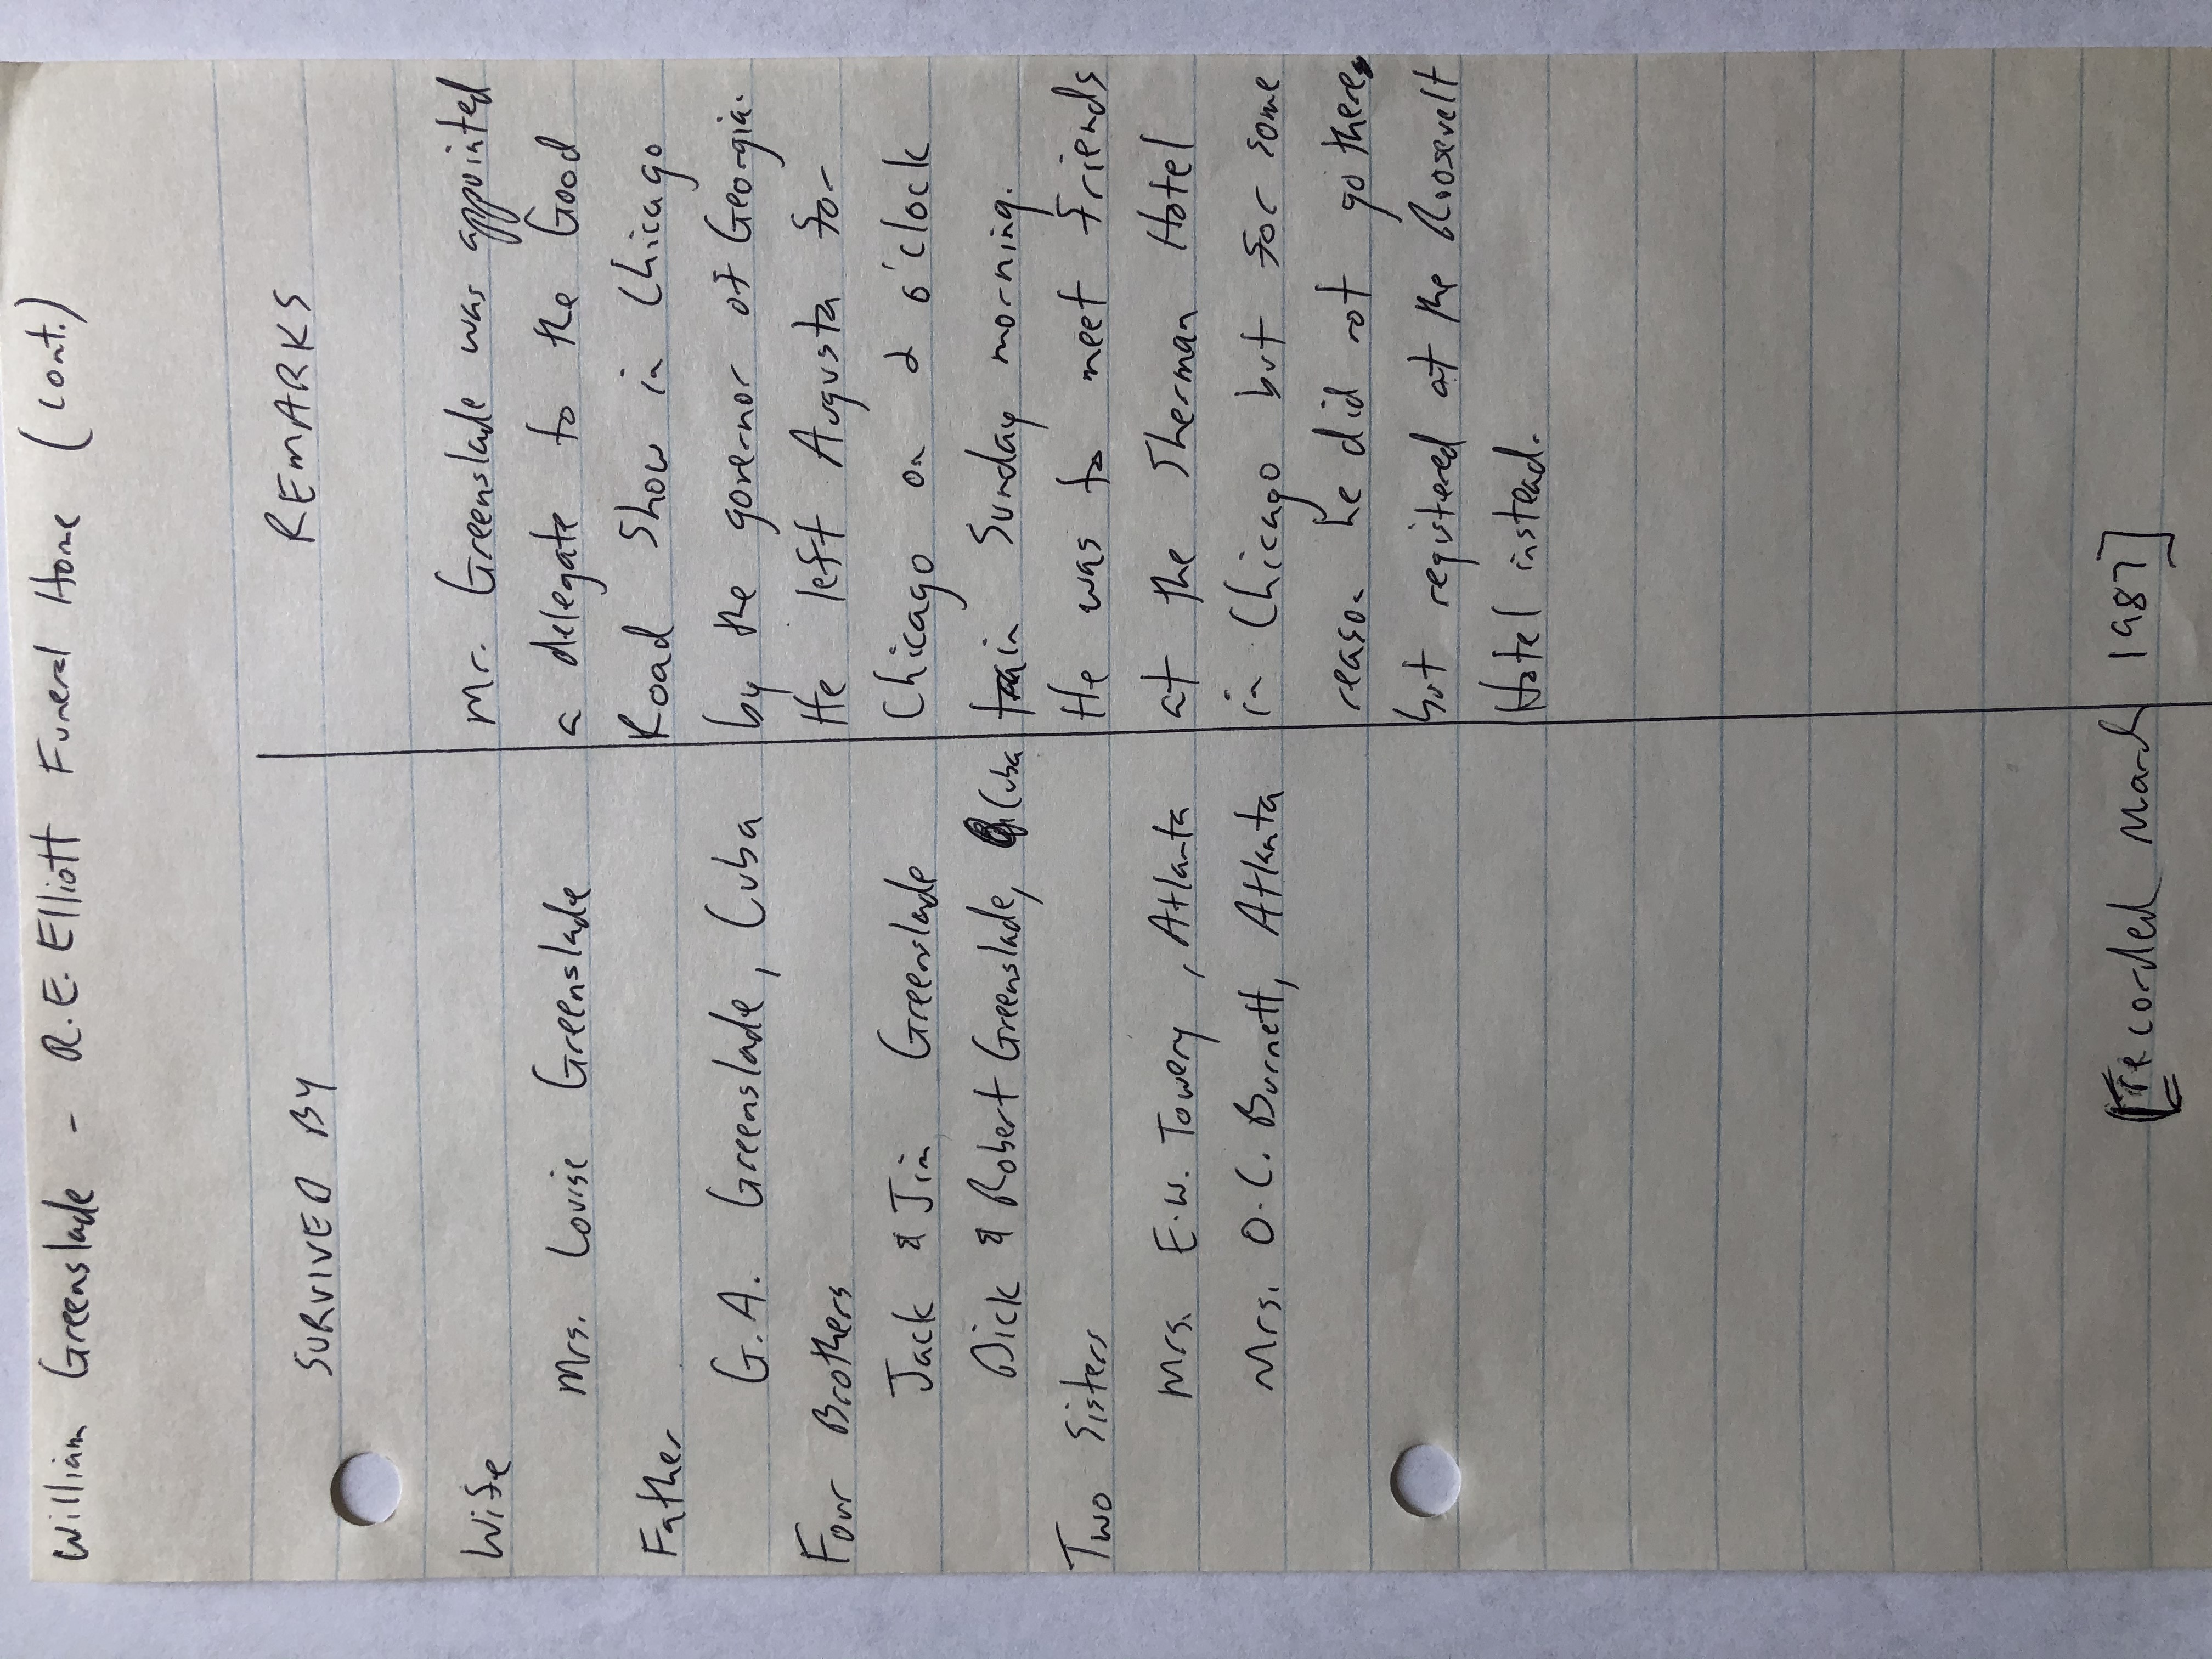 William Greenslade - R.E. Elliott Funeral Home (cont.)
SURVIVED BY
Wife
Mrs. Louise Greenslade
Father
G.A. Greenslade, Cuba
Four Brothers
Jack & Jim Greenslade
Dick & Robert Greenslade, Cuba
Two Sisters
Mrs. E.W. Towery, Atlanta
Mrs. O.C. Burnett, Atlanta
REMARKS
Mr. Greenslade was appointed
a delegate to the Good
Road Show in Chicago
by the governor of Georgia.
He left Augusta for
Chicago on 2 o'clock
train Sunday morning.
He was to meet friends
at the Sherman Hotel
in Chicago but for some
reason he did not go there
but registered at the Roosevelt
Hotel instead.
[recorded March 1987]